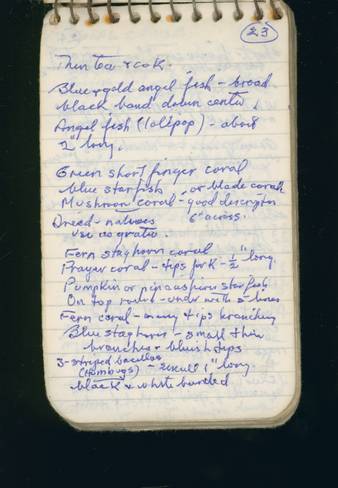 23
Then tea & cok.
Blue & gold angel fish - broad
black band down center.
Angel fish (lollipop) - about
2" long.
Green short finger coral
blue starfish, or blade coral
Mushroom coral - good descriptn
Dried - natives 6" across.
use as grater.
Fern staghorn coral
Prayer coral - tips for K - 1/2" long.
Pumpkin or pincushion starfish
On top - under with 5 lines
Fern coral - many tips branching
Blue staghorn - small thin
branches & bluish tips
3-striped
(Humbugs) - small 1" long.
black & white banded